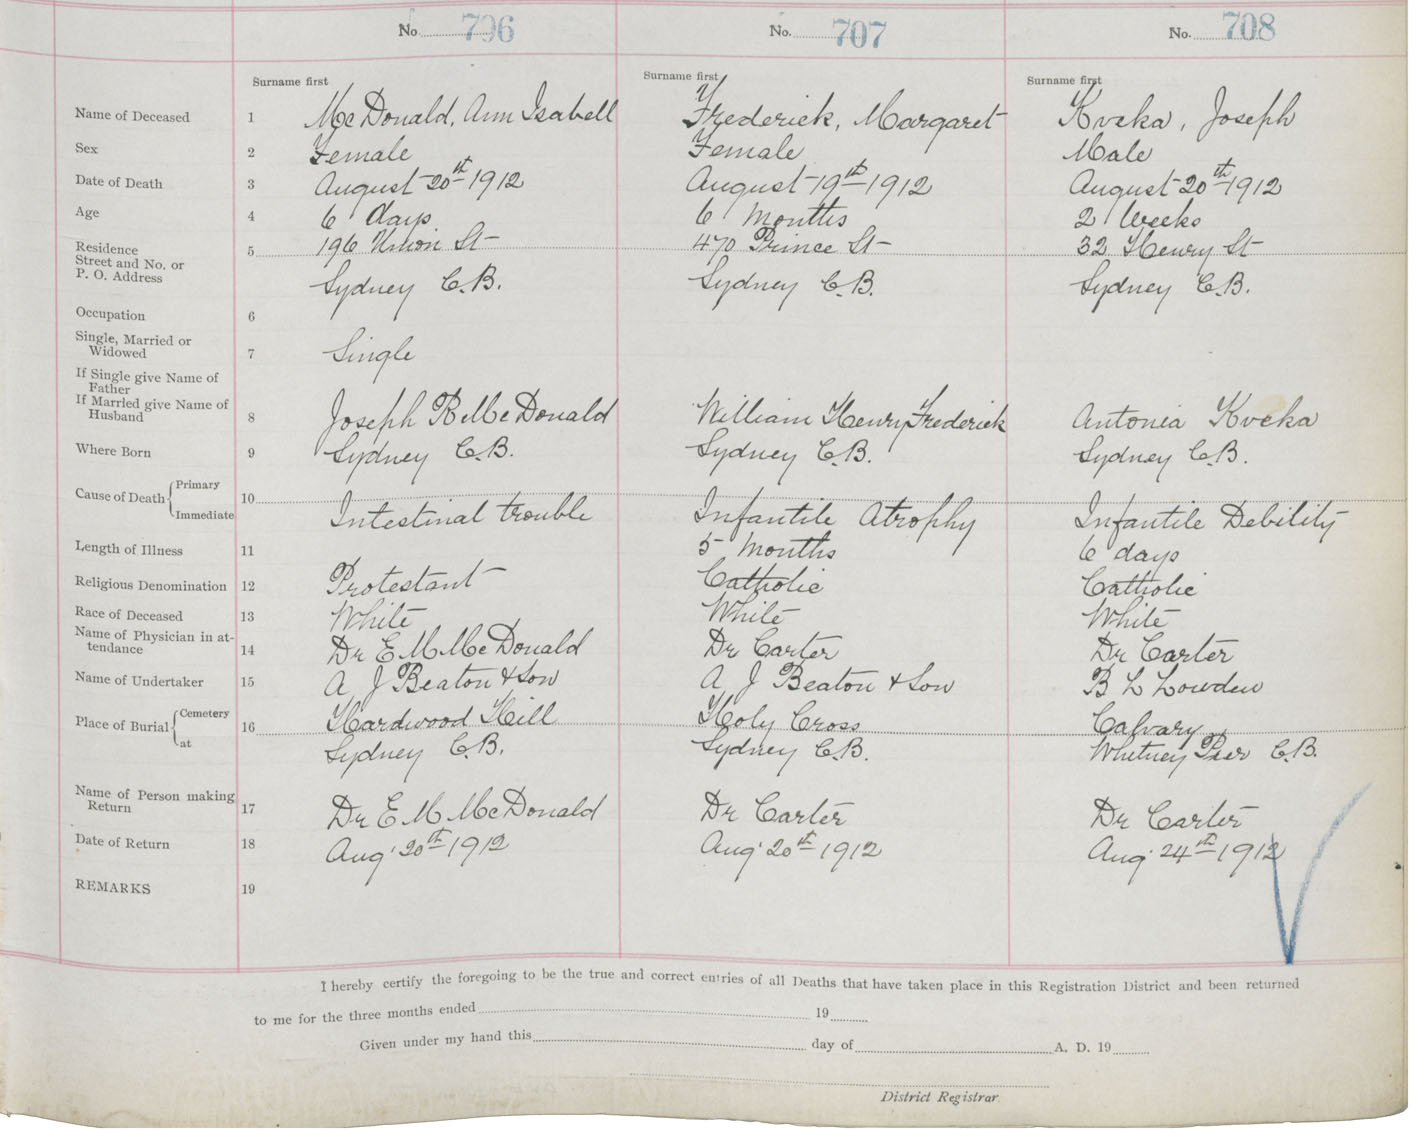 No. 706 No. 707 No. 708
Surname first Surname first Surname first
Name of Deceased 1 McDonald, Ann Isabell Frederick, Margaret Kvcka, Joseph
Sex 2 Female Female Male
Date of Death 3 August 20th 1912 August 19th 1912 August 20th 1912
Age 4 6 days 6 months 2 Weeks
Residence 5 196 Union St 470 Prince St 32 Henry St
Street and No. or
P. O. Address Sydney C.B. Sydney C.B. Sydney C.B.
Occupation 6
Single, Married or
Widowed 7 Single
If Single give Name of
Father
If Married give Name of
Husband 8 Joseph R McDonald William Henry Frederick Antonia Kvcka
Where Born 9 Sydney C.B. Sydney C.B. Sydney C.B.
Cause of Death { Primary 10
Immediate Intestinal trouble Infantile Atrophy Infantile Debility
Length of Illness 11 5 months 6 days
Religious Denomination 12 Protestant Catholic Catholic
Race of Deceased 13 White White White
Name of Physician in at-
tendance 14 Dr E M McDonald Dr Carter Dr Carter
Name of Undertaker 15 A J Beaton & Son A J Beaton & Son B L Lowden
Place of Burial { Cemetery 16 Hardwood Hill Holy Cross Calvary
at Sydney C.B. Sydney C.B. Whitney Pier C.B.
Name of Person making
Return 17 Dr E M McDonald Dr Carter Dr Carter
Date of Return 18 Aug. 20th 1912 Aug. 20th 1912 Aug. 24th 1912
REMARKS 19
I hereby certify the foregoing to be the true and correct entries of all Deaths that have taken place in this Registration District and been returned
to me for the three months ended 19
Given under my hand this day of A. D. 19
District Registrar